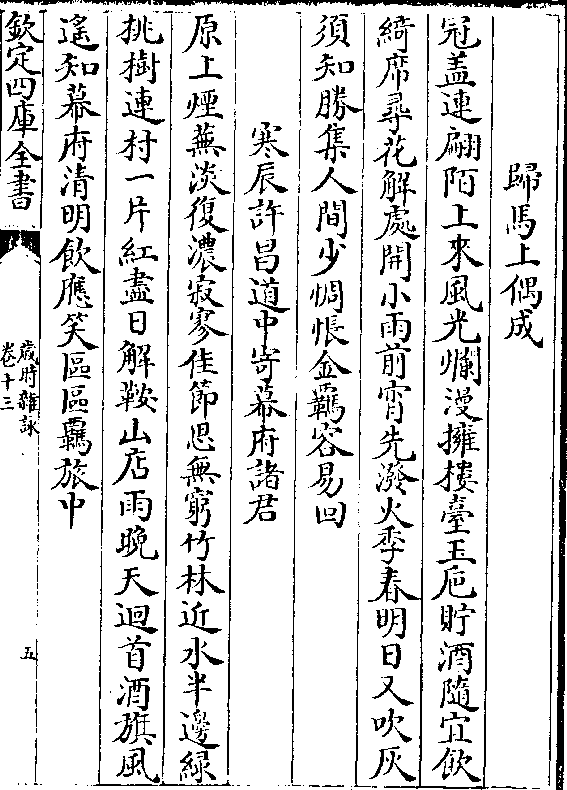 歸馬上偶成
冠盖連翩陌上來風光爛漫擁樓臺玉巵貯酒隨宜飲
綺席尋花解處開小雨前宵先潑火季春明日又吹灰
須知勝集人間少惆悵金羈容易回
寒辰許昌道中寄幕府諸君
原上煙蕪淡復濃寂寥佳節思無窮竹林近水半邊緑
挑樹連村一片紅盡日解鞍山店雨晚天迴首酒旗風
遙知幕府清明飲應笑區區羈旅中
欽定四庫全書
歲時雜詠
卷十三
五